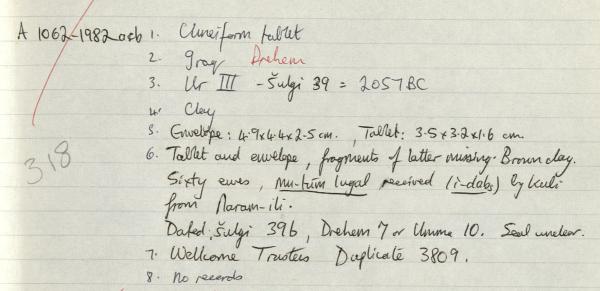 A 1062-1982 a&b 1. Cuneiform tablet
2. Iraq Drehem
3. Ur III - Šulgi 39 = 2057 BC
4. Clay
5. Envelope: 4.9x4.4x2.5 cm., Tablet: 3.5x3.2x1.6 cm.
318
6. Tablet and envelope, fragments of latter missing. Brown clay.
Sixty ewes, mu-túm lugal received (ì-dab5) by Kuli
from Naram-ili.
Dated: Šulgi 39b, Drehem 7 or Umma 10. Seal unclear.
7. Wellcome Trustees Duplicate 3809.
8. No records